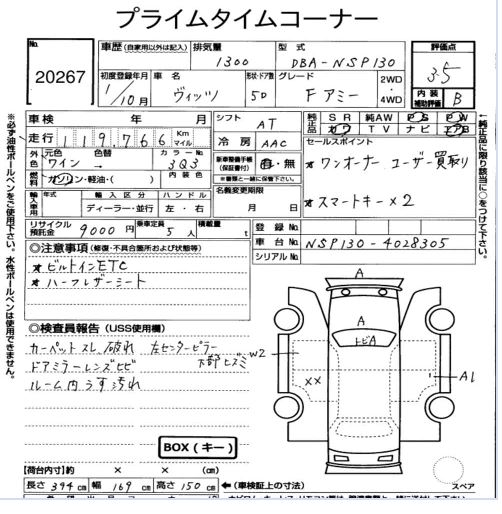 プライムタイムコーナー
No. 20267
車歴 (自家用以外は記入) 排気量 1300 型式 DBA-NSP130 評価点 3.5
初度登録年月 1/10月 車名 ヴィッツ 形状・ドア数 5D グレード F アミー 2WD ・ 4WD 内装補助評価 B
車検 年 月 シフト AT 純正品 SR 純AW PS PW
走行 119,766 Km マイル 冷房 AAC カワ TV ナビ エアB
外色 元色 ワイン 色替 → カラーNo 3Q3 新車整備手帳(保証書付) 有・無 セールスポイント
燃料 ガソリン・軽油・( ) 内装色 ※書類と一緒に保管下さい ★ワンオーナー ユーザー買取り
輸入車用 年式 輸入区分 ハンドル 名義変更期限
ディーラー・並行 左・右 月 日 ★スマートキー×2
リサイクル預託金 9000円 乗車定員 5人 積載量 t 登録No.
車台No. NSP130-4028305
シリアルNo.
◎注意事項 (修復・不具合箇所および状態等)
★ビルトインETC
★ハーフレザーシート
◎検査員報告 (USS使用欄)
カーペットスレ 破れ 左センターピラー
下部ヒズミ
ドアミラーレンズヒビ
ルーム内うす汚れ
BOX(キー)
A
A
トビA
W2
XX
A1
A
スペア
【荷台内寸】約 × × (cm)
長さ 394 cm 幅 169 cm 高さ 150 cm ←(車検証上の寸法)
※必ず油性ボールペンをご使用下さい。水性ボールペンは使用できません。
※純正品に限り該当に○をつけて下さい。